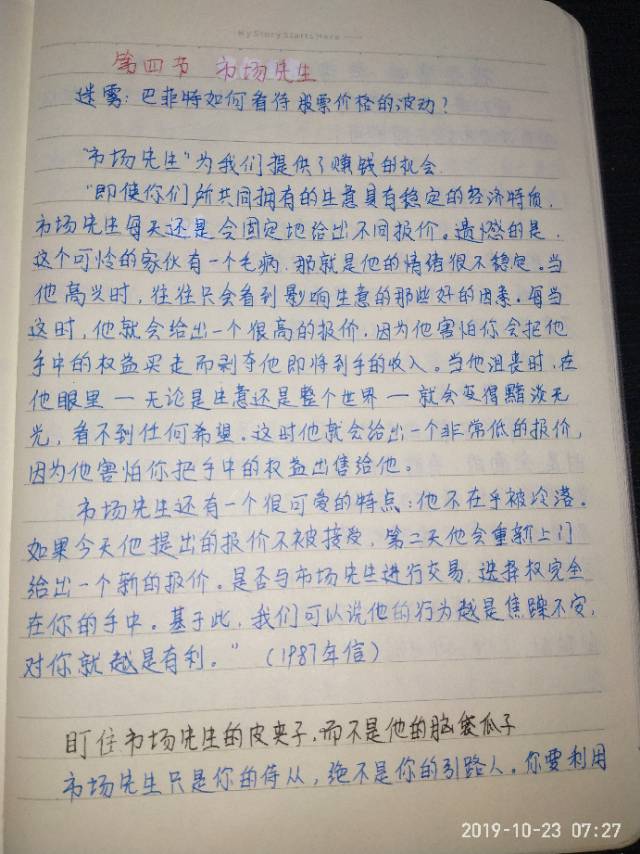 My Story Starts Here
第四节 市场先生
迷雾：巴菲特如何看待股票价格的波动？
“市场先生”为我们提供了赚钱的机会.
“即使你们所共同拥有的生意具有稳定的经济特质，
市场先生每天还是会固定地给出不同报价。遗憾的是，
这个可怜的家伙有一个毛病，那就是他的情绪很不稳定。当
他高兴时，往往只会看到影响生意的那些好的因素。每当
这时，他就会给出一个很高的报价，因为他害怕你会把他
手中的权益买走而剥夺他即将到手的收入。当他沮丧时，在
他眼里—无论是生意还是整个世界—就会变得黯淡无
光，看不到任何希望。这时他就会给出一个非常低的报价，
因为他害怕你把手中的权益出售给他。
市场先生还有一个很可爱的特点：他不在乎被冷落。
如果今天他提出的报价不被接受，第二天他会重新上门
给出一个新的报价。是否与市场先生进行交易，选择权完全
在你的手中。基于此，我们可以说他的行为越是焦躁不安，
对你就越是有利。”（1987年信）
盯住市场先生的皮夹子，而不是他的脑袋瓜子
市场先生只是你的侍从，绝不是你的引路人。你要利用
2019-10-23 07:27